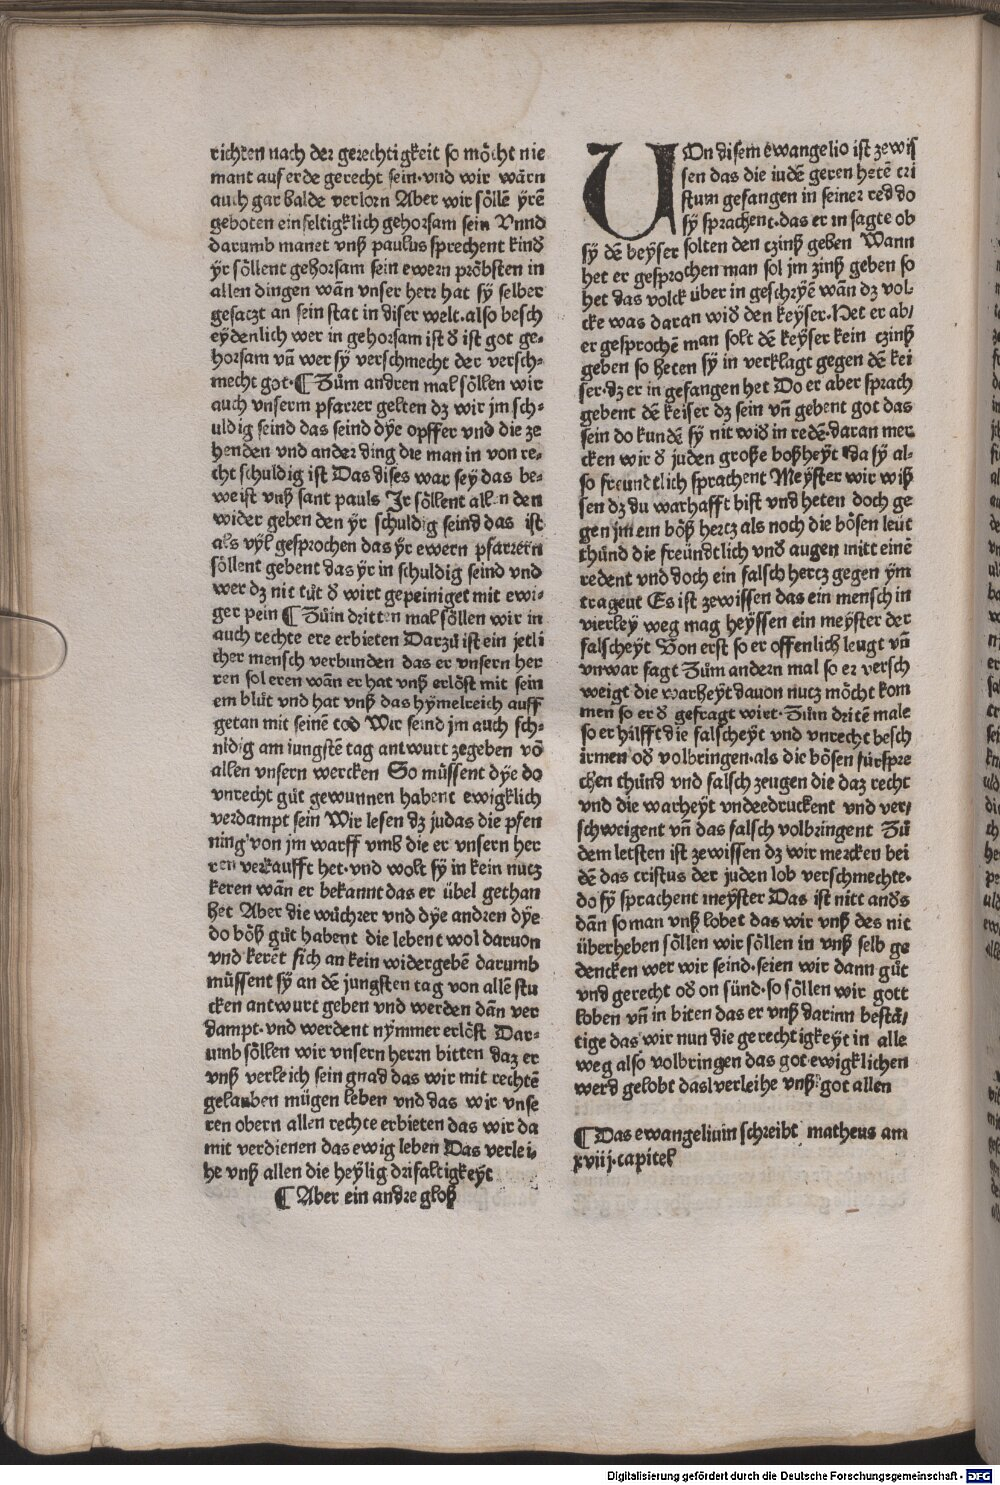 richten nach der gerechtigkeit so möcht nie
mant auf erde gerecht sein·vnd wir wärn
auch gar balde verlorn Aber wir söllē ÿrē
geboten einfeltigklich gehorsam sein Vnnd
darumb manet vnß paulus sprechent kind
ÿr söllent gehorsam sein ewern pröbsten in
allen dingen wañ vnser herr hat sÿ selber
gesaczt an sein stat in diser welt·also besch
eydenlich wer in gehorsam ist d ist got ge-
horsam vñ wer sÿ verschmecht der versch-
mecht got·¶ Zům andren mal söllen wir
auch vnserm pfarrer gelten dz wir jm sch-
uldig seind das seind dÿe opffer vnd die ze
henden vnd ander ding die man in von re-
cht schuldig ist Das dises war seÿ das be-
weist vnß sant pauls Jr söllent allen den
wider geben den ÿr schuldig seind das ist
als vÿl gesprochen das ÿr ewern pfarrern
söllent gebent das ÿr in schuldig seind vnd
wer dz nit tůt d wirt gepeiniget mit ewi-
ger pein ¶ Zům dritten mal söllen wir in
auch rechte ere erbieten Darzů ist ein jetli
cher mensch verbunden das er vnsern her
ren sol eren wañ er hat vnß erlöst mit sein
em blůt vnd hat vnß das hÿmelreich auff
getan mit seinē tod Wir seind jm auch sch-
nldig am iungstē tag antwurt zegeben vō
allen vnsern wercken So müssent dÿe do
vnrecht gůt gewunnen habent ewigklich
verdampt sein Wir lesen dz judas die pfen
ning von jm warff vmb die er vnsern her
ren verkaufft het·vnd wolt sÿ in kein nutz
keren wañ er bekannt das er übel gethan
het Aber die wůchrer vnd dÿe andren dÿe
do böß gůt habent die lebent wol daruon
vnd kerēt sich an kein widergebē darumb
müssent sÿ an dē jungsten tag von allē stu
cken antwurt geben vnd werden dañ ver
dampt·vnd werdent nÿmmer erlöst Dar-
umb söllen wir vnsern herrn bitten daz er
vnß verleich sein gnad das wir mit rechtē
gelauben mügen leben vnd das wir vnse
ren obern allen rechte erbieten das wir da
mit verdienen das ewig leben Das verlei-
he vnß allen die heÿlig drifaltigkeÿt
¶ Aber ein andre gloß
VOn disem ewangelio ist zewis
sen das die iudē geren hetē cri
stum gefangen in seiner red do
sÿ sprachent·das er in sagte ob
sÿ dē beÿser solten den czinß geben Wann
het er gesprochen man sol jm zinß geben so
het das volck über in geschrÿē wañ dz vol-
cke was daran wid den keÿser·Het er ab/
er gesprochē man solt dē keÿser kein czinß
geben so heten sÿ in verklagt gegen dē kei
ser·dz er in gefangen het Do er aber sprach
gebent dē keiser dz sein vñ gebent got das
sein do kundē sÿ nit wid in redē·daran mer
cken wir d juden große boßheÿt da sÿ al-
so freundtlich sprachent Meÿster wir wiß
sen dz du warhafft bist vnd heten doch ge
gen jm ein böß hertz als noch die bösen leüt
thůnd die freündtlich vnd augen mitt einē
redent vnd doch ein falsch hercz gegen ÿm
trageut Es ist zewissen das ein mensch in
vierleÿ weg mag heÿssen ein meÿster der
falscheÿt Von erst so er offenlich leugt vñ
vnwar sagt Zům andern mal so er versch
weigt die warheÿt dauon nutz möcht kom
men so er d gefragt wirt·Zům dritē male
so er hilfft die falscheÿt vnd vnrecht besch
irmen od volbringen·als die bösen fürspre
chen thůnd vnd falsch zeugen die daz recht
vnd die warheÿt vndeedruckent vnd ver/
schweigent vñ das falsch volbringent Zů
dem letsten ist zewissen dz wir mercken bei
dē das cristus der juden lob verschmechte·
do sÿ sprachent meÿster Das ist nitt anders
dañ so man vnß lobet das wir vnß des nit
überheben söllen wir söllen in vnß selb ge
dencken wer wir seind·seien wir dann gůt
vnd gerecht od on sünd·so söllen wir gott
loben vñ in biten das er vnß darinn bestä/
tige das wir nun die gerechtigkeÿt in alle
weg also volbringen das got ewigklichen
werd gelobt das verleihe vnß got allen
¶ Das ewangelium schreibt matheus am
xviij·capitel
Digitalisierung gefördert durch die Deutsche Forschungsgemeinschaft - DFG